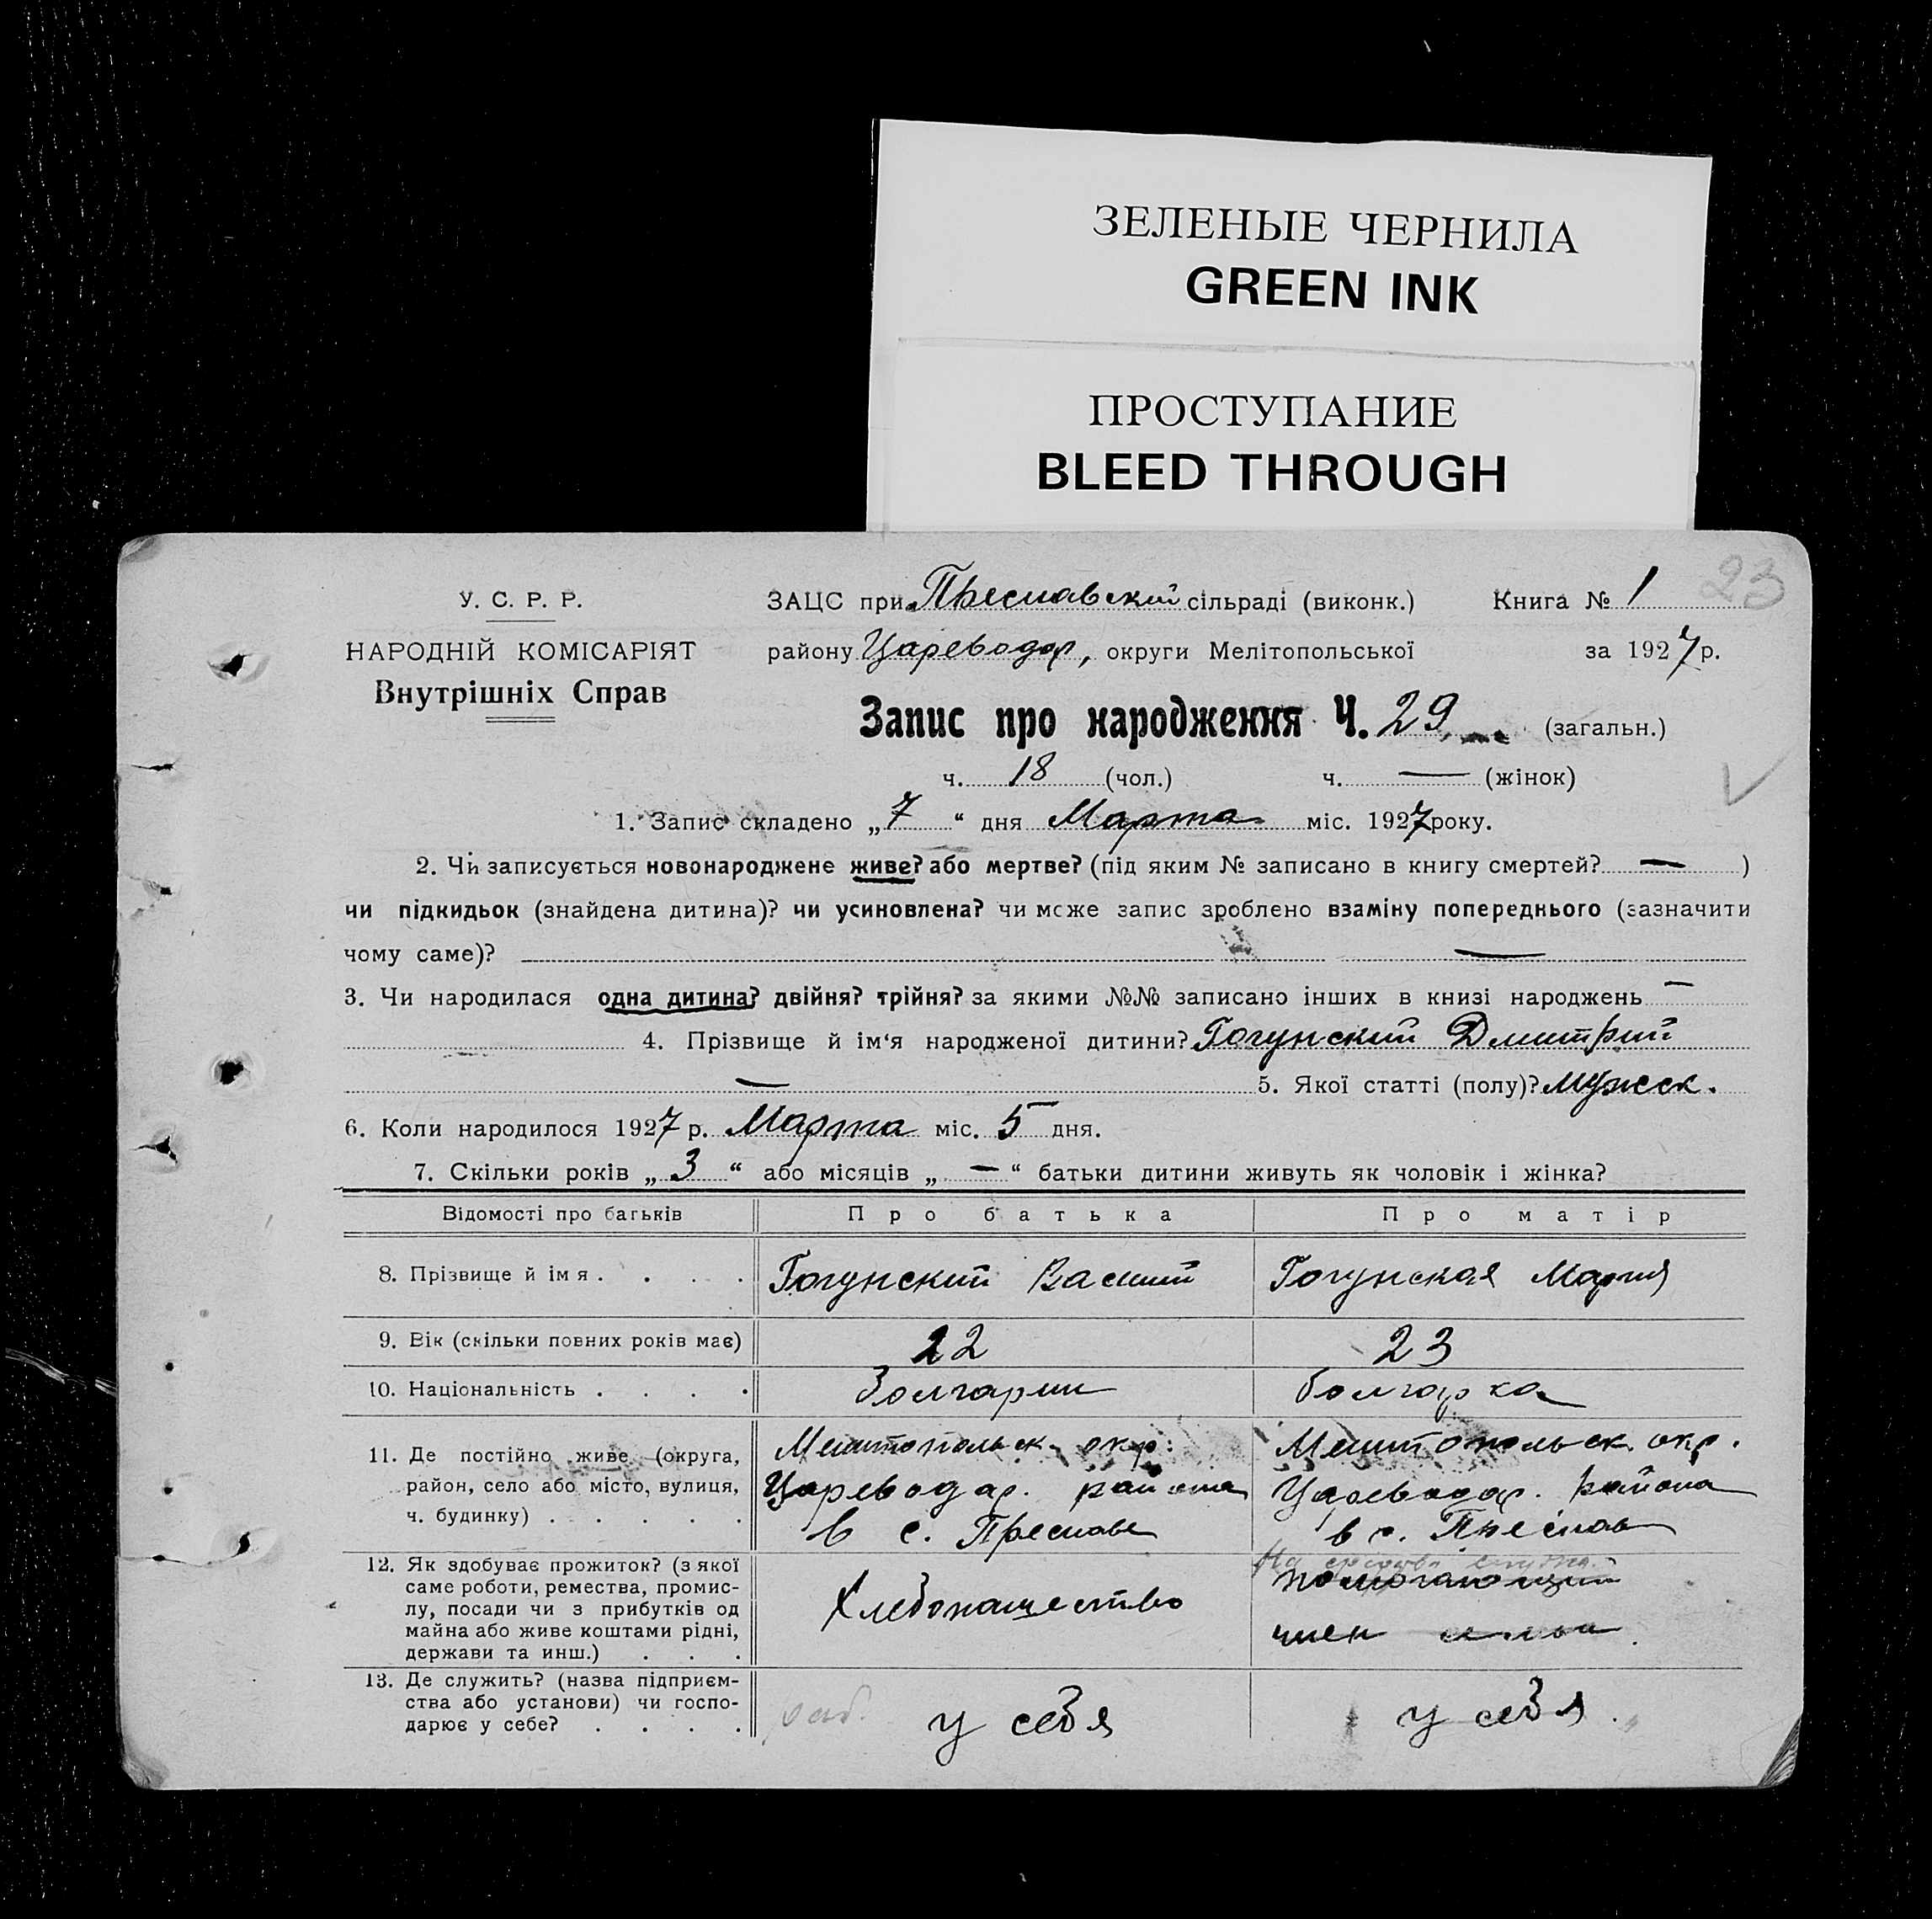 ЗЕЛЕНЫЕ ЧЕРНИЛА
GREEN INK
ПРОСТУПАНИЕ
BLEED THROUGH
23
У. С. Р. Р.
ЗАЦС при Преславский сільраді (виконк.) Книга № 1
НАРОДНІЙ КОМІСАРІЯТ
району Цареводар, округи Мелітопольської за 1927 р.
Внутрішніх Справ
Запис про народження Ч. 29 (загальн.)
ч. 18 (чол.) ч. — (жінок)
1. Запис складено „ 7 “ дня Марта міс. 1927 року.
2. Чи записується новонароджене живе? або мертве? (під яким № записано в книгу смертей? — )
чи підкидьок (знайдена дитина)? чи усиновлена? чи може запис зроблено взаміну попереднього (зазначити
чому саме)? —
3. Чи народилася одна дитина? двійня? трійня? за якими №№ записано інших в книзі народжень —
4. Прізвище й ім‘я народженої дитини? Гогунский Дмитрий
— 5. Якої статті (полу)? Мужск.
6. Коли народилося 1927 р. Марта міс. 5 дня.
7. Скільки років „ 3 “ або місяців „ — “ батьки дитини живуть як чоловік і жінка?
Відомості про батьків Про батька Про матір
8. Прізвище й ім я . . . . Гогунский Василий Гогунская Мария
9. Вік (скільки повних років має) 22 23
10. Національність . . . . Болгарин болгарка
11. Де постійно живе (округа, Мелитопольск. окр. Мелитопольск. окр.
район, село або місто, вулиця, Цареводар. района Цареводар. района
ч. будинку) . . . . . в с. Преславе в с. Преслав
12. Як здобуває прожиток? (з якої
саме роботи, ремества, промис- помогающий
лу, посади чи з прибутків од Хлебопашество
майна або живе коштами рідні, член семьи
держави та инш.) . . .
13. Де служить? (назва підприєм-
ства або установи) чи госпо- у себя у себя
дарює у себе? . . . .